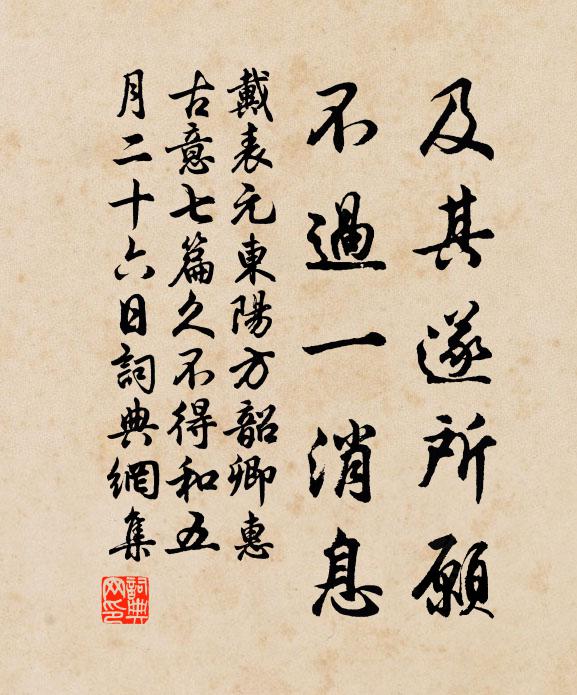 及其遂所願
不過一消息
戴表元東陽方韶卿惠
古意七篇久不得和五
月二十六日詞典網集
詞典
网印